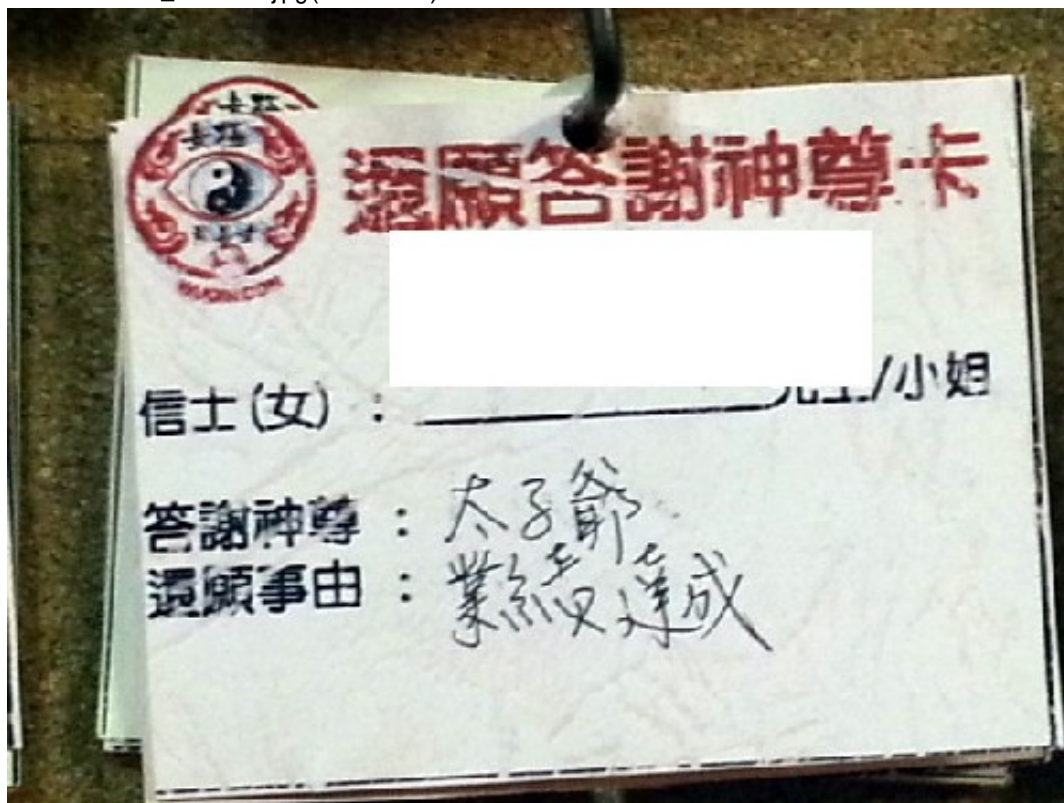 還願答謝神尊卡
信士(女)：／小姐
答謝神尊：太子爺
還願事由：業績達成